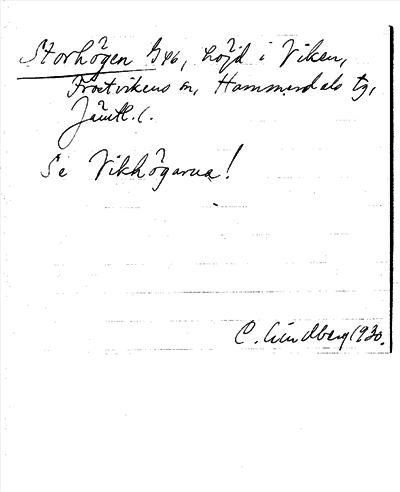 Storhögen 846, höjd i Viken,
Frostvikens sn, Hammerdals tg,
Jämtl. l.
Se Vikhögarna!
C. Lindberg 1930.